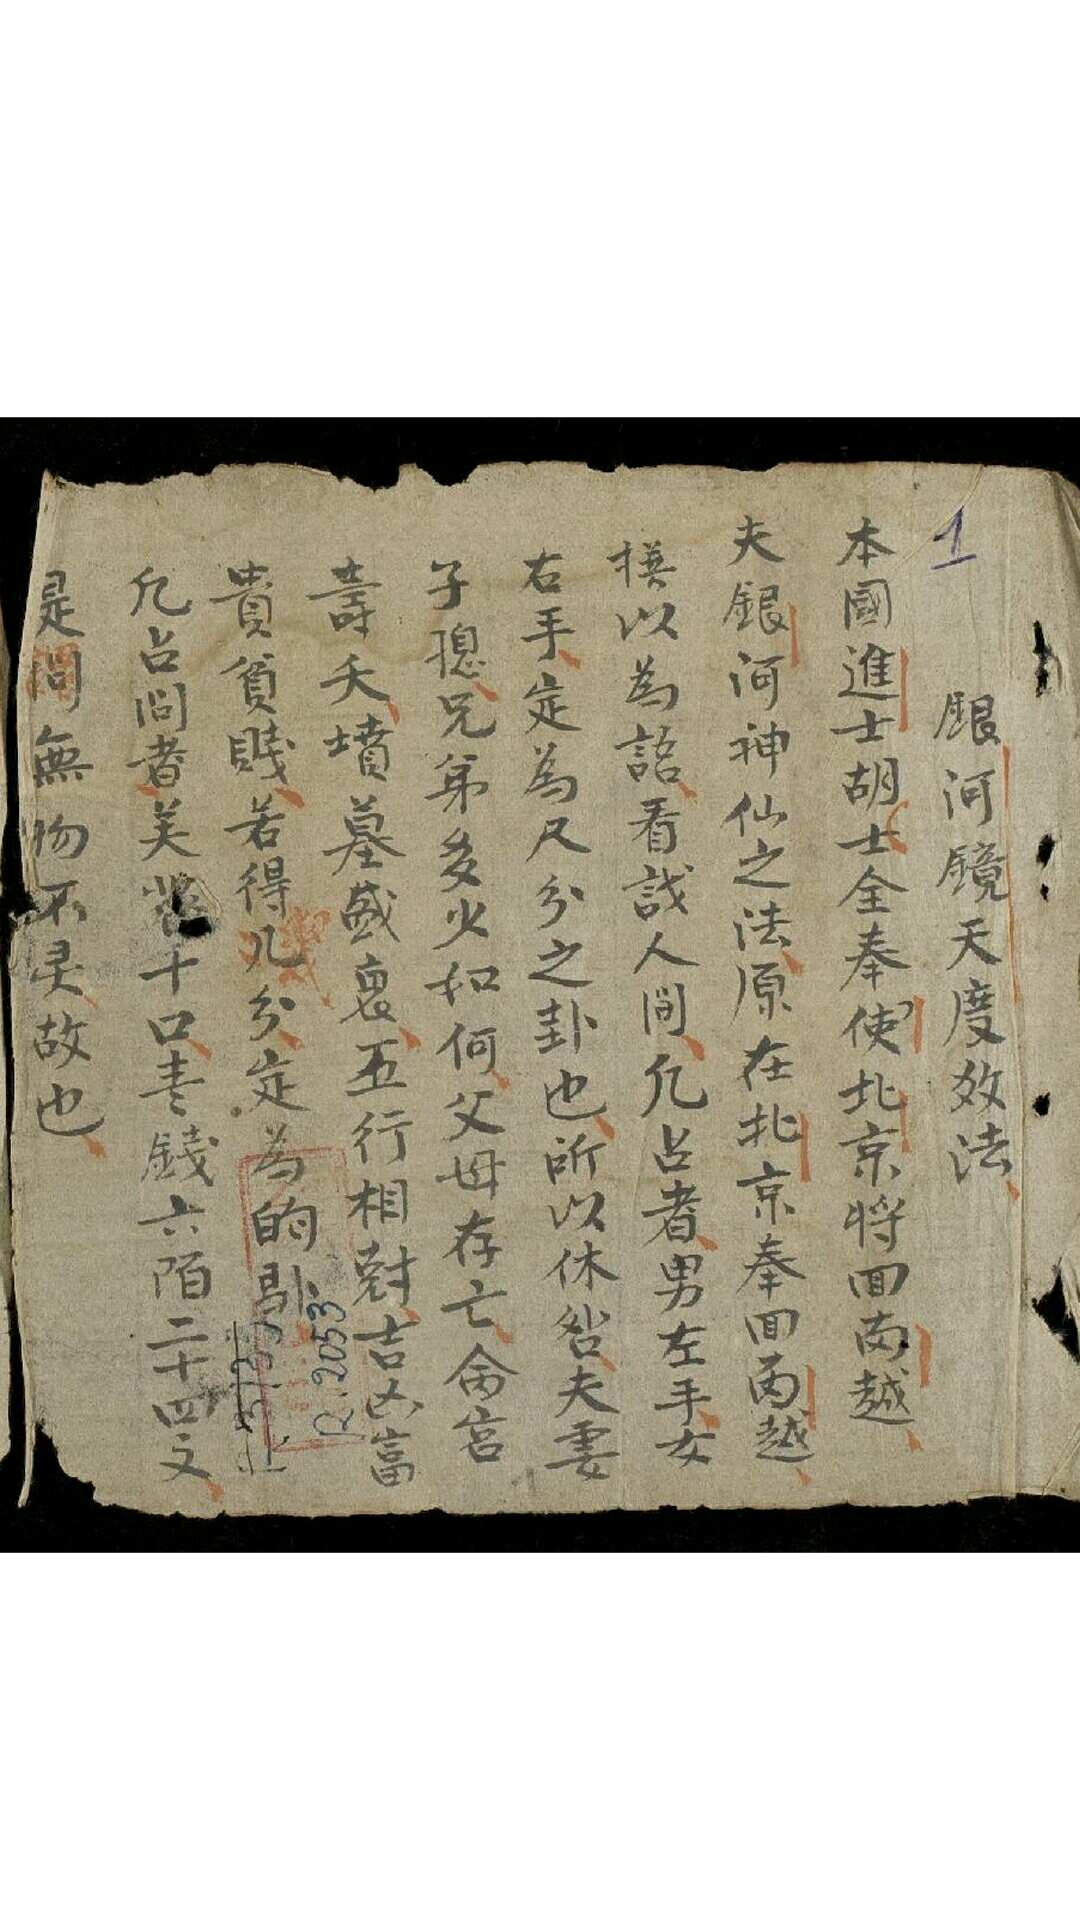 1
銀河鏡天度效法
本國進士胡士全奉使北京將回南越
夫銀河神仙之法原在北京奉回南越
以為語看試人間凡占者男左手女
右手定為尺分之卦也所以休咎夫妻
子媳兄弟多少如何父母存亡命宮
壽夭墳墓盛衰五行相尅吉凶富
貴貧賤若得几分定為的
凡占問者芙十口青錢六陌二十四文
是問無物不灵故也
R.2053